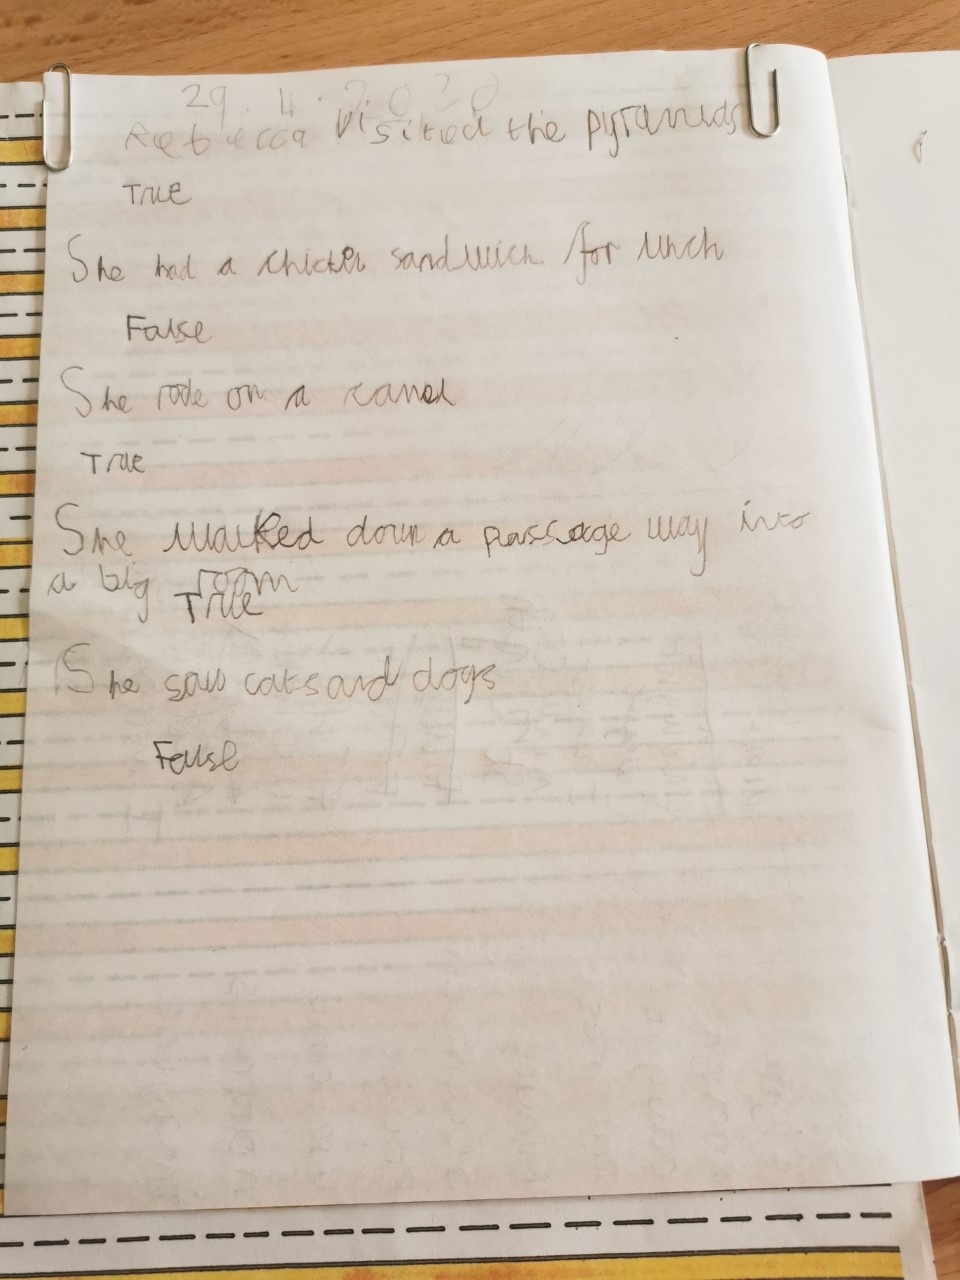 29.4.2020
Rebecca visited the pyramids
True
She had a chicken sandwich for lunch
False
She rode on a camel
True
She walked down a passage way into
a big room
True
She saw cats and dogs
False